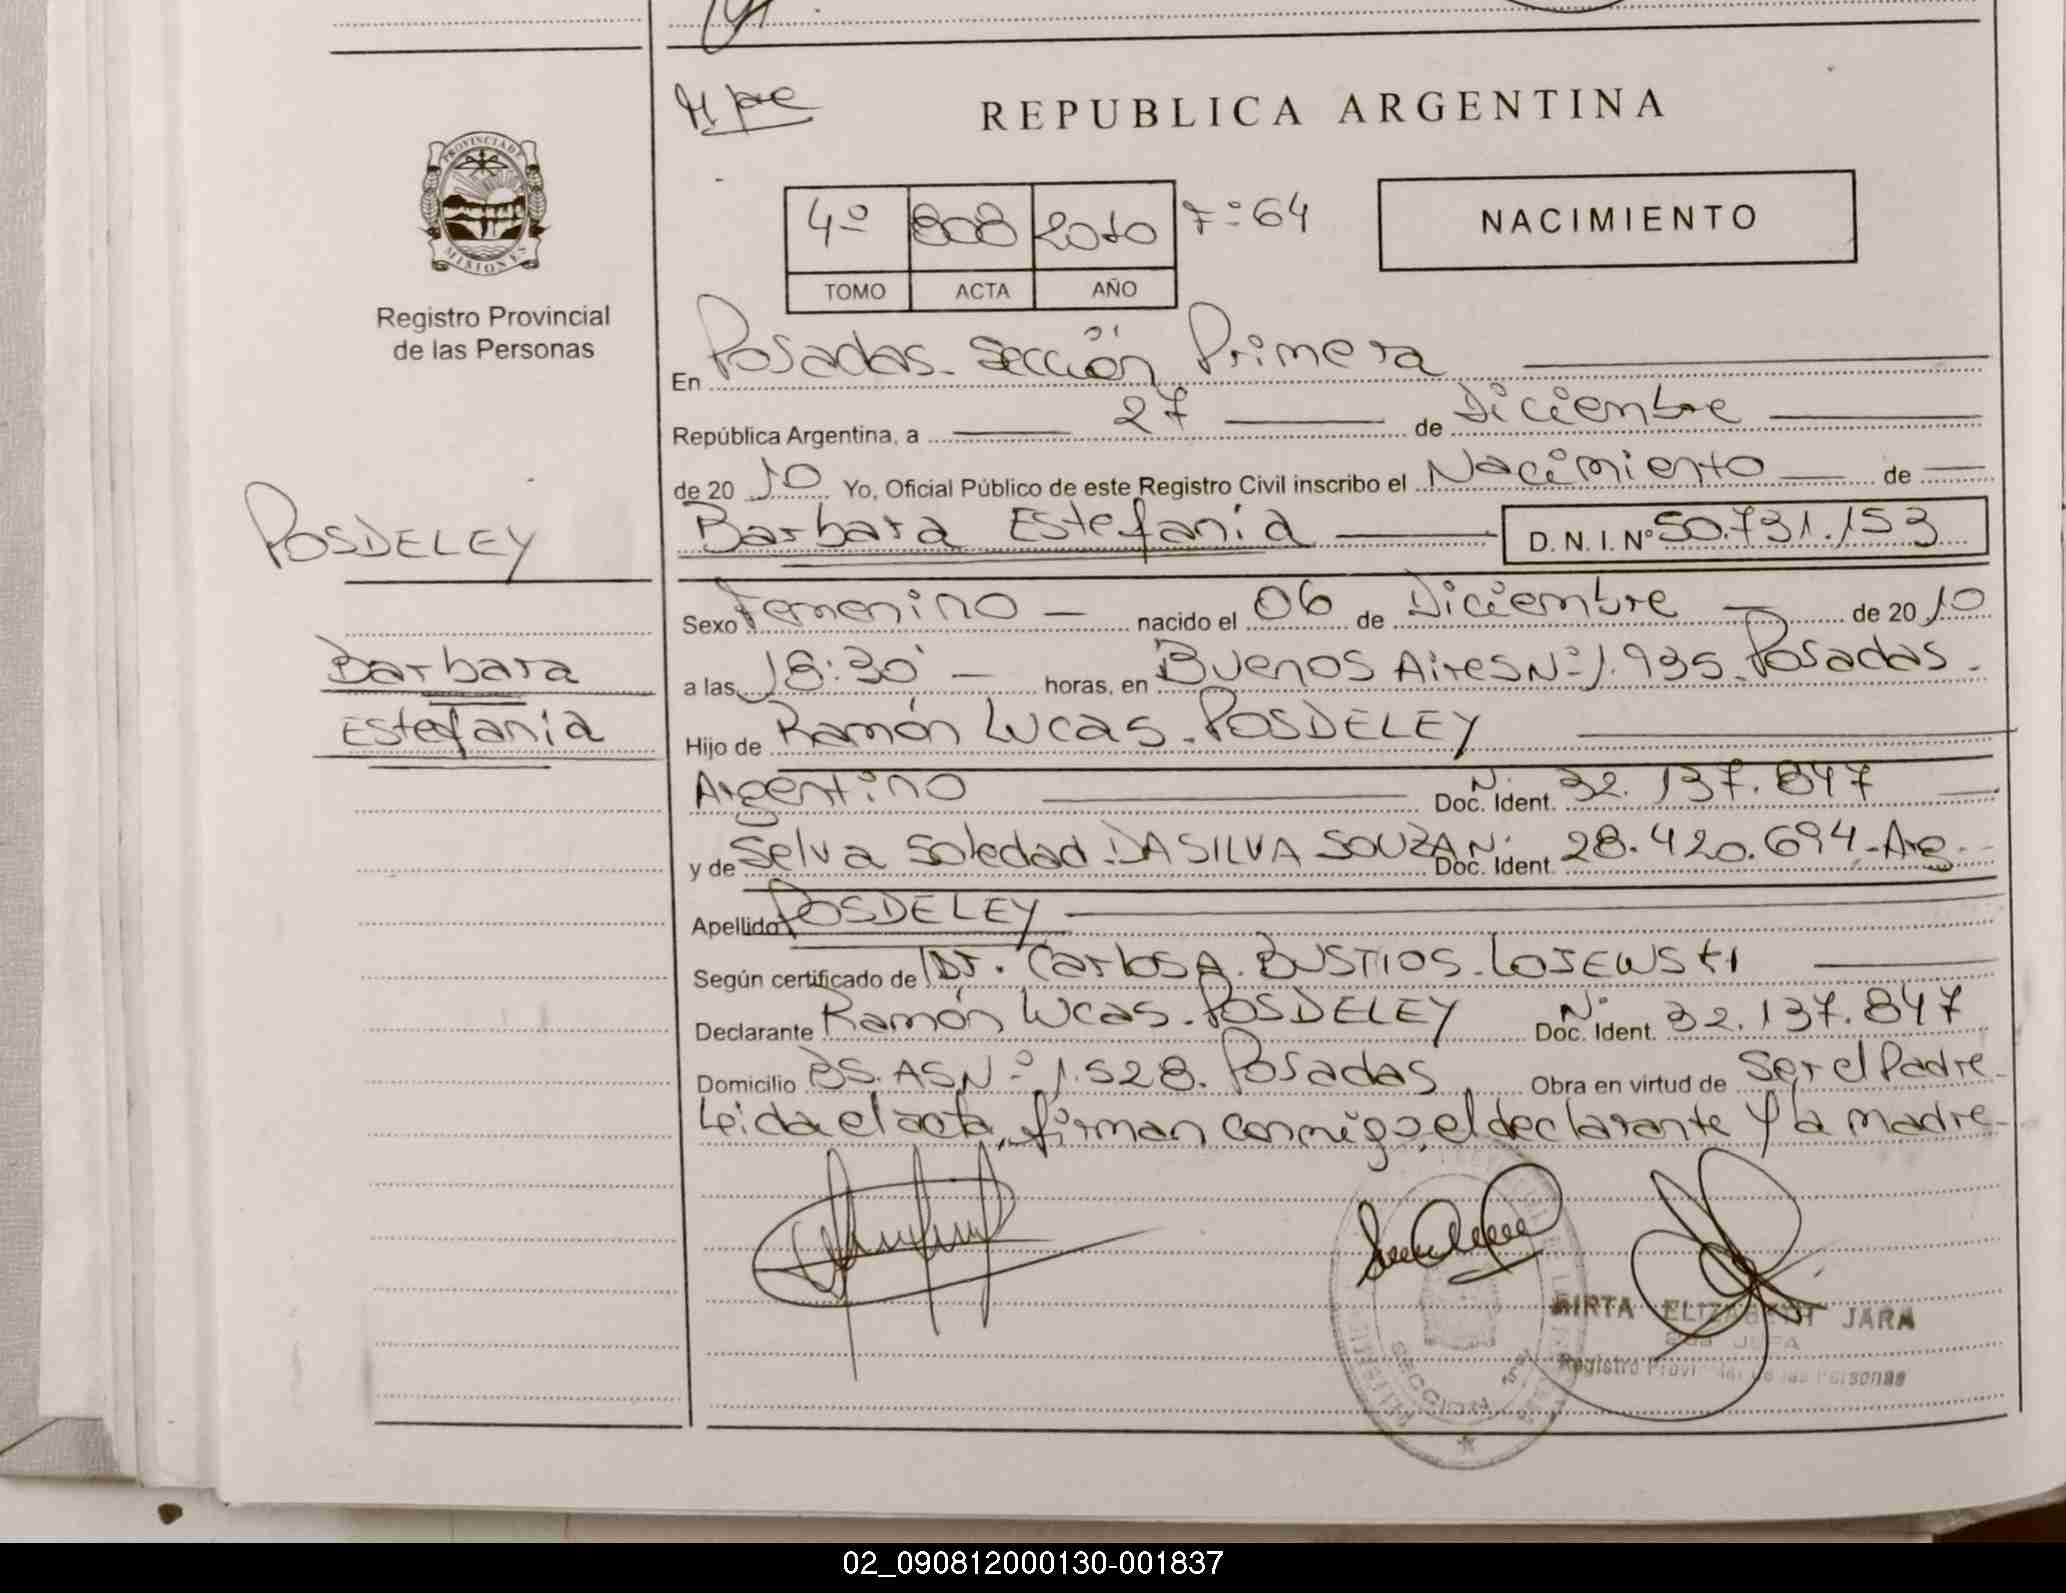 REPUBLICA ARGENTINA
PROVINCIA DE
MISIONES
Registro Provincial
de las Personas
4º 808 2010 Fº 64
TOMO ACTA AÑO
NACIMIENTO
En Posadas. Sección Primera
República Argentina, a 27 de Diciembre
de 20 10 Yo, Oficial Público de este Registro Civil inscribo el Nacimiento de
POSDELEY
Barbara Estefanía D. N. I. Nº 50.731.153
Sexo Femenino nacido el 06 de Diciembre de 20 10
Barbara
a las 18:30 horas, en Buenos Aires Nº 1.935. Posadas.
Estefanía
Hijo de Ramón Lucas. POSDELEY
Argentino Doc. Ident. Nº 32.137.847
y de Selva Soledad. DA SILVA SOUZA Doc. Ident. Nº 28.420.694-Arg.
Apellido POSDELEY
Según certificado de Dr. Carlos A. BUSTIOS. LOSEWSKI
Declarante Ramón Lucas. POSDELEY Doc. Ident. Nº 32.137.847
Domicilio BS. AS Nº 1.528. Posadas Obra en virtud de Ser el Padre.
Leida el acta, firman conmigo, el declarante y la madre.
MIRTA ELIZABETH JARA
Registro Provincial de las Personas
SECCION
02_090812000130-001837